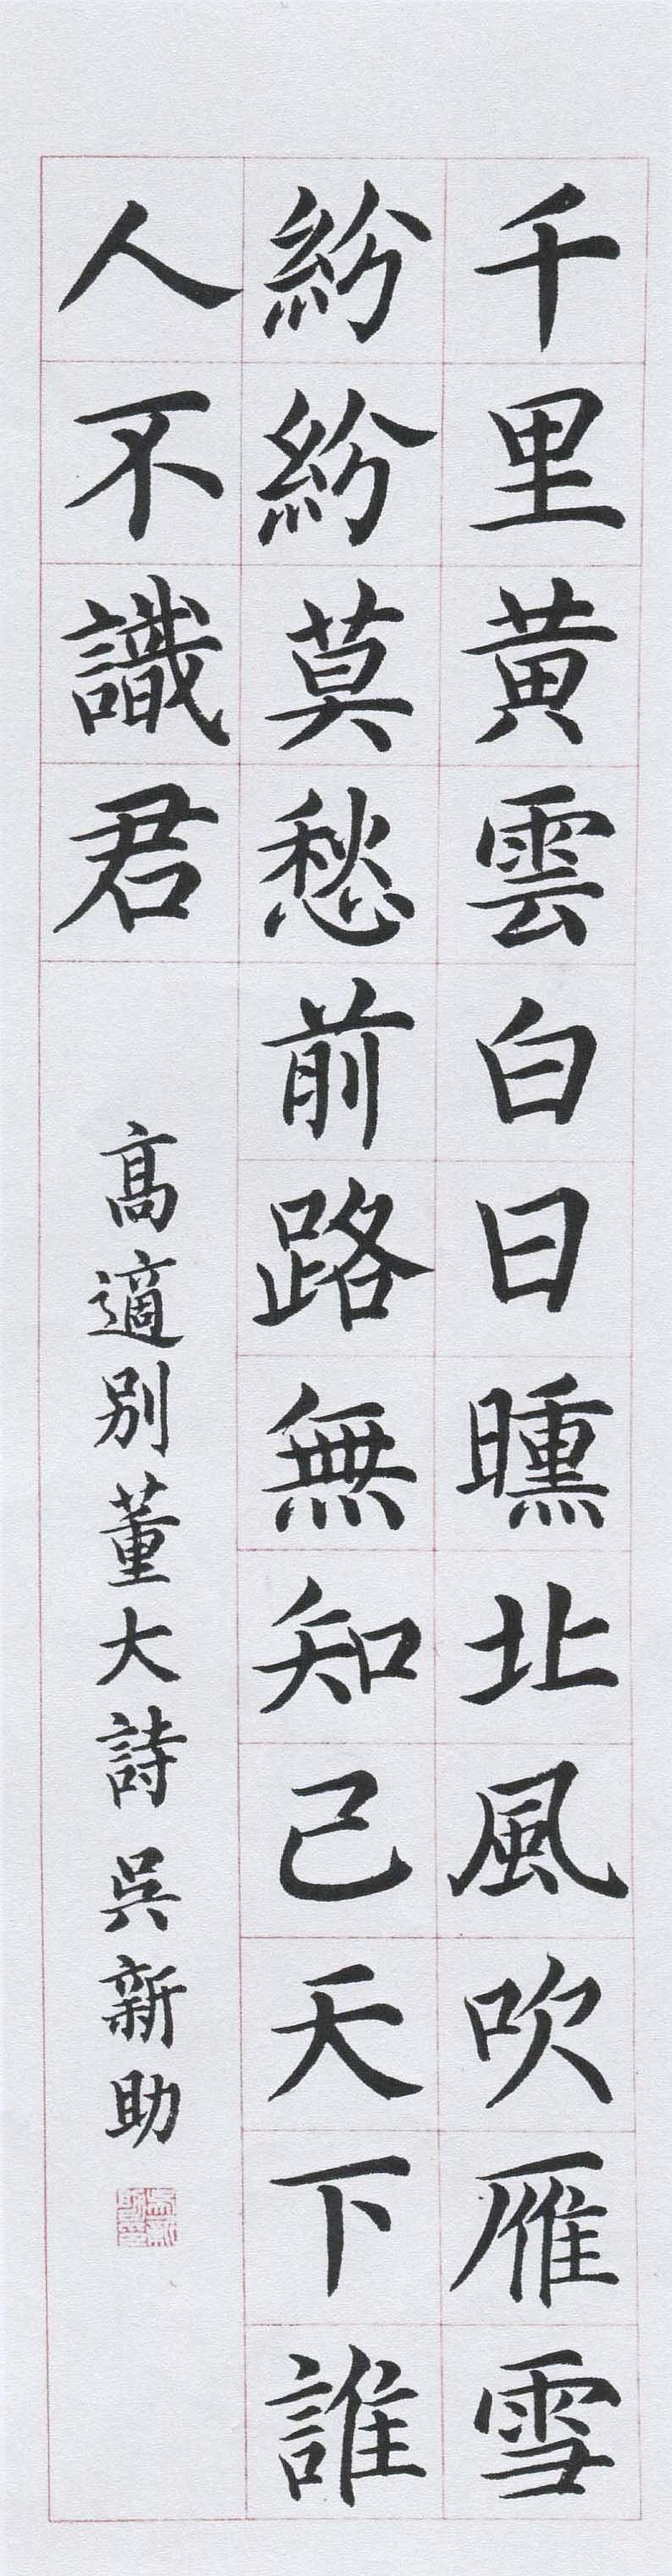 千里黃雲白日曛北風吹雁雪
紛紛莫愁前路無知己天下誰
人不識君
高適別董大詩 吳新助